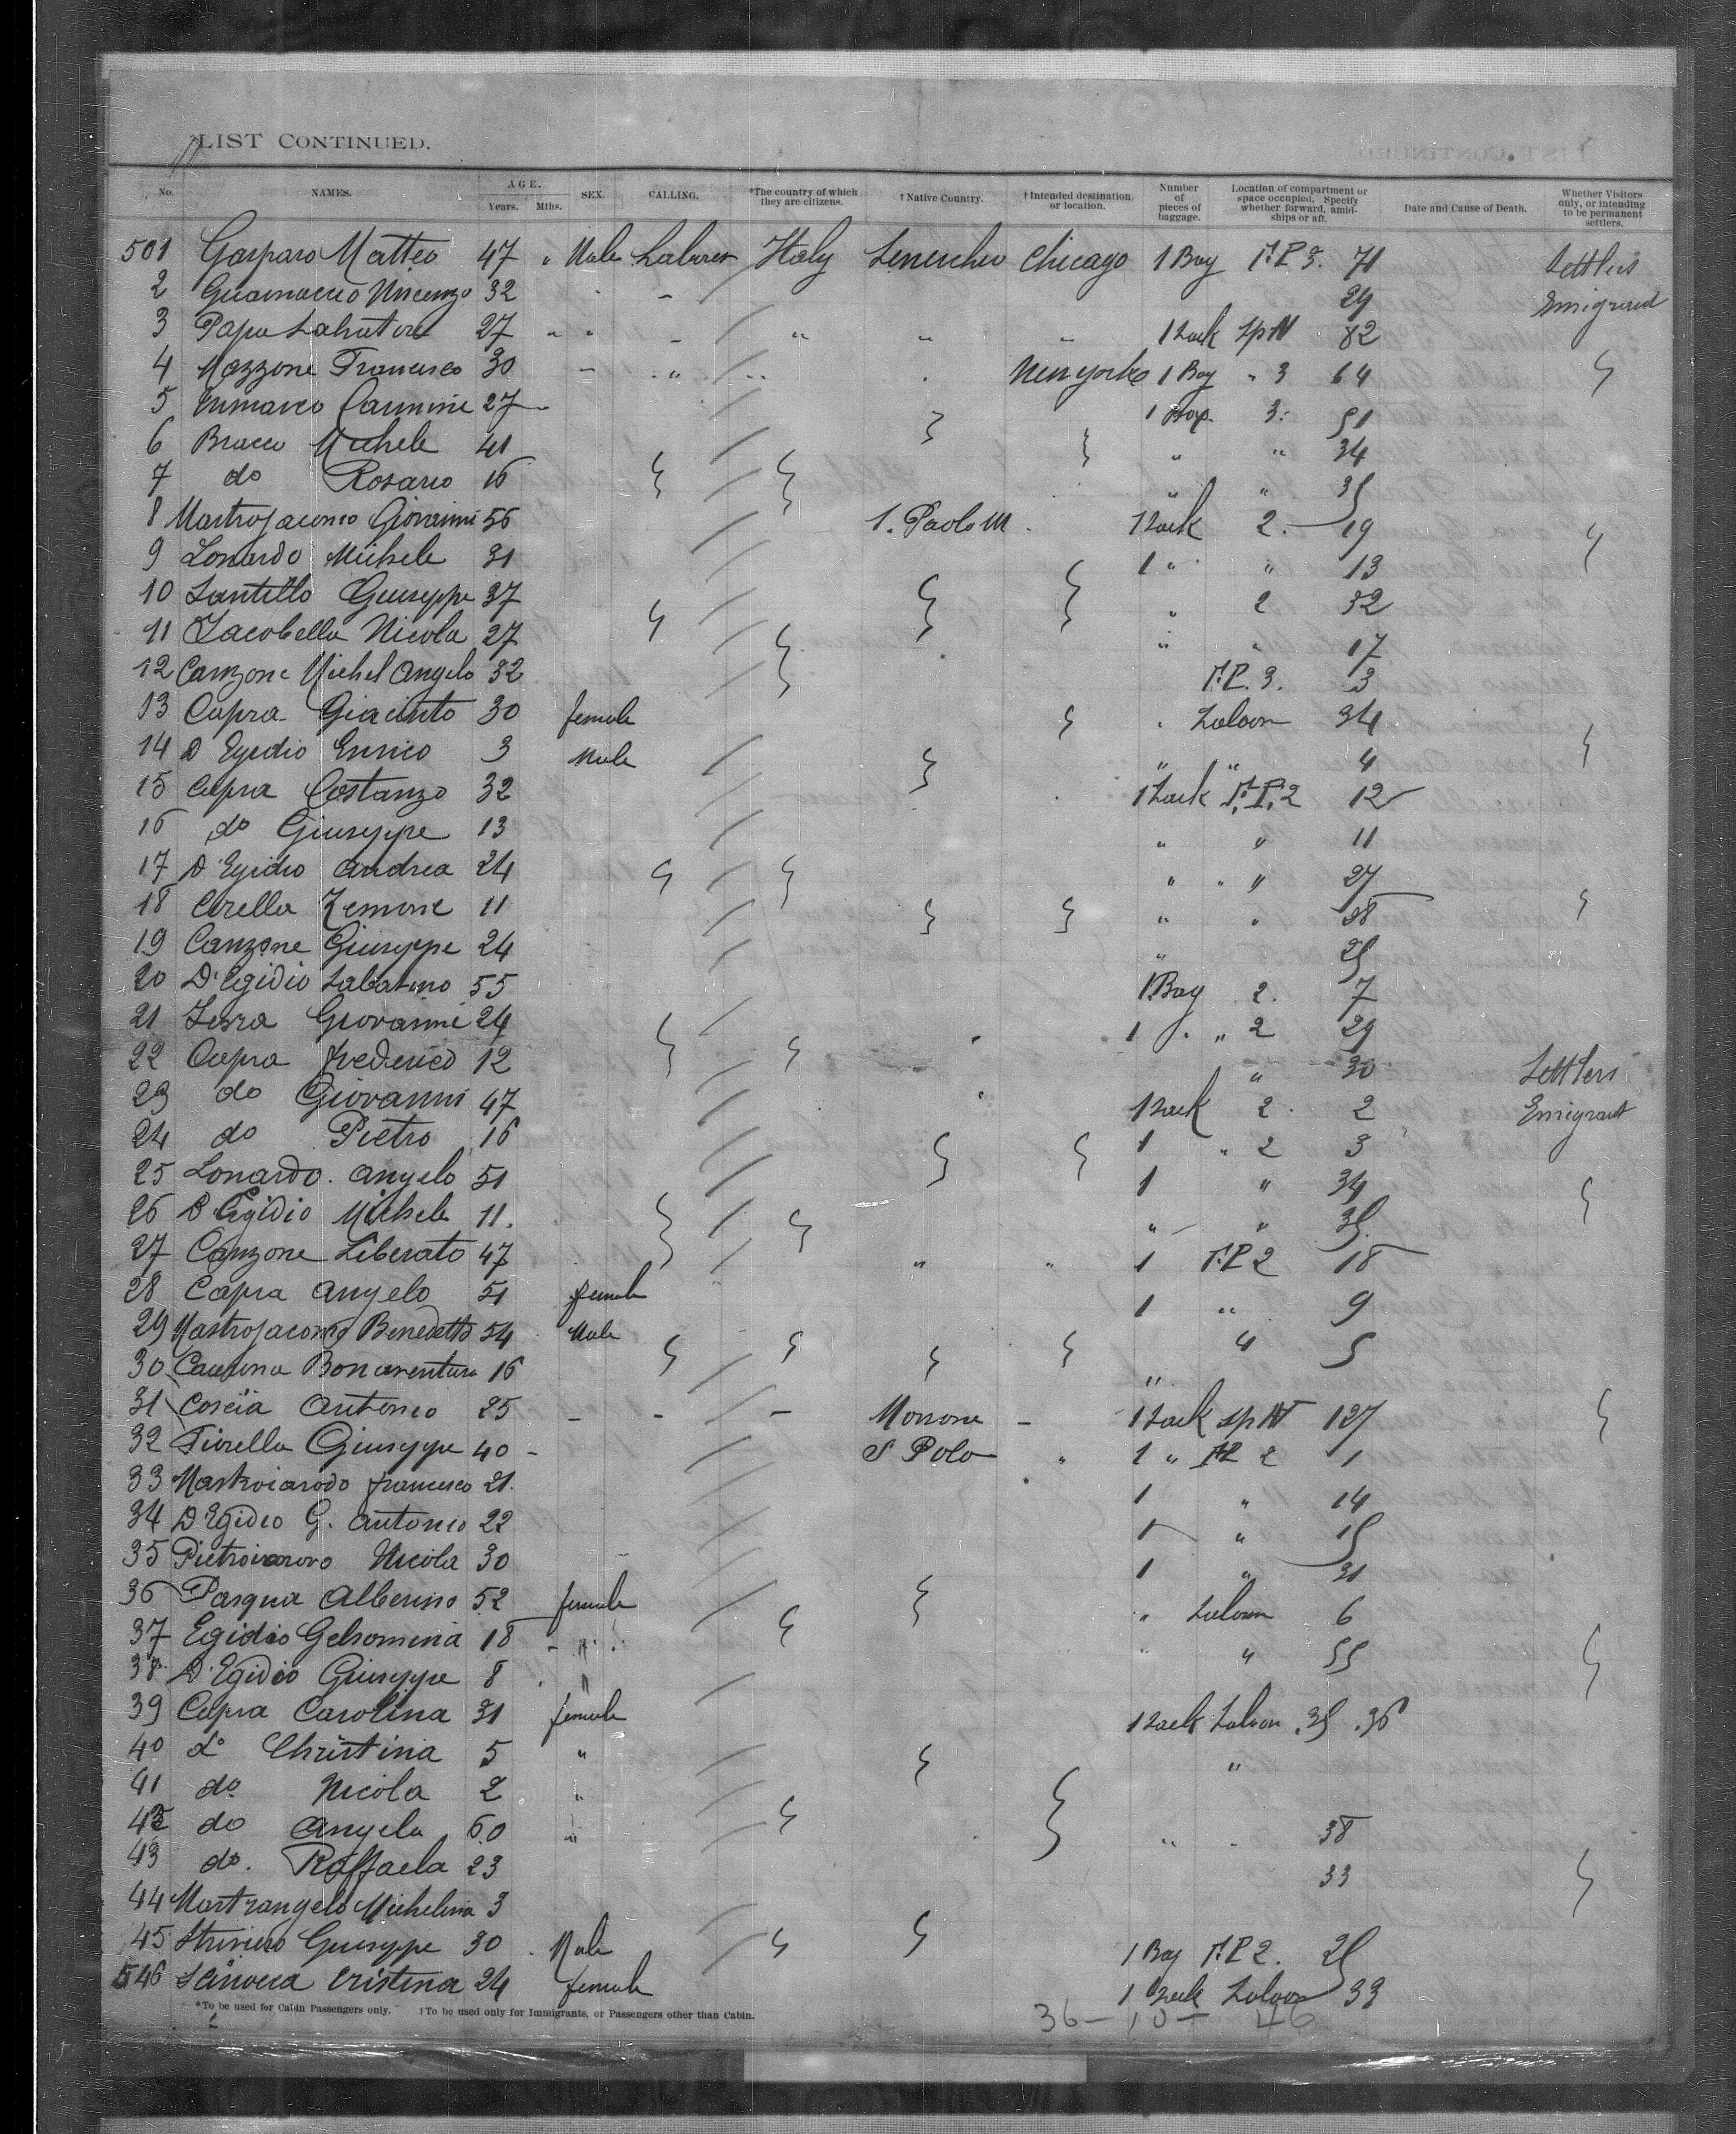 LIST CONTINUED.
No. NAMES. AGE. Years. Mths. SEX. CALLING. *The country of which they are citizens. †Native Country. †Intended destination or location. Number of pieces of baggage. Location of compartment or space occupied. Specify whether forward, amidships or aft. Date and Cause of Death. Whether Visitors only, or intending to be permanent settlers.
501 Gasparo Matteo 47 " Male Laborer Italy Chicago 1 Bag 3. 71 Settlers
2 32 29 Emigrant
3 Papa Salvatore 27 " " " " " 1 Sack 82
4 Mazzone Francesco 30 " " New York 1 Bag " 3 64
5 Carmine 27 1 Bag. 3. 51
6 Bracco Michele 41 " " 34
7 do Rosario 16 " " 35
8 Mastrojacomo Giovanni 56 S. Paolo M. 1 Sack 2. 19
9 Lonardo Michele 31 1 " " 13
10 Santillo Giuseppe 37 " 2 32
11 Jacobella Nicola 27 " " 17
12 Canzone Michel Angelo 32 3. 3
13 Capra Giacinto 30 female " Saloon 34
14 D Egidio Enrico 3 Male " " 4
15 Capra Costanzo 32 1 Sack 2 12
16 do Giuseppe 13 " " 11
17 D'Egidio Andrea 24 " " " 27
18 Cirella 11 " " 28
19 Canzone Giuseppe 24 " 25
20 D'Egidio Sabatino 55 1 Bag 2. 7
21 Giovanni 24 1 " " 2 29
22 Capra Frederico 12 " 30 Settlers
23 do Giovanni 47 1 Sack 2. 2 Emigrant
24 do Pietro 16 1 " 2 3
25 Lonardo. Angelo 51 1 " 34
26 D'Egidio Michele 11. " " 35.
27 Canzone Liberato 47 " " 1 2 18
28 Capra Angelo 51 female 1 " 9
29 Mastrojacomo Benedetto 54 Male " 5
30 Bonaventura 16 "
31 Coscia Antonio 25 Morrone 1 Sack 127
32 Fiorella Giuseppe 40 S Polo " 1 " 2 1
33 Francesco 21. 1 " 14
34 D'Egidio G. Antonio 22 1 " 15
35 Nicola 30 1 " 31
36 Pasqua Alberino 52 female " Saloon 6
37 Egidio Gelsomina 18 " " " 55
38 D'Egidio Giuseppe 8 "
39 Capra Carolina 31 female 1 Sack Saloon .35 .36
40 do Christina 5 " "
41 do. Nicola 2 "
42 do Angela 60 " " 38
43 do. Raffaela 23 33
44 Mastrangelo Michelina 3
45 Giuseppe 30 Male 1 Bag 2. 25
546 Cristina 24 female 1 Sack Saloon 33
*To be used for Cabin Passengers only. †To be used only for Immigrants, or Passengers other than Cabin.
36 – 10 – 46